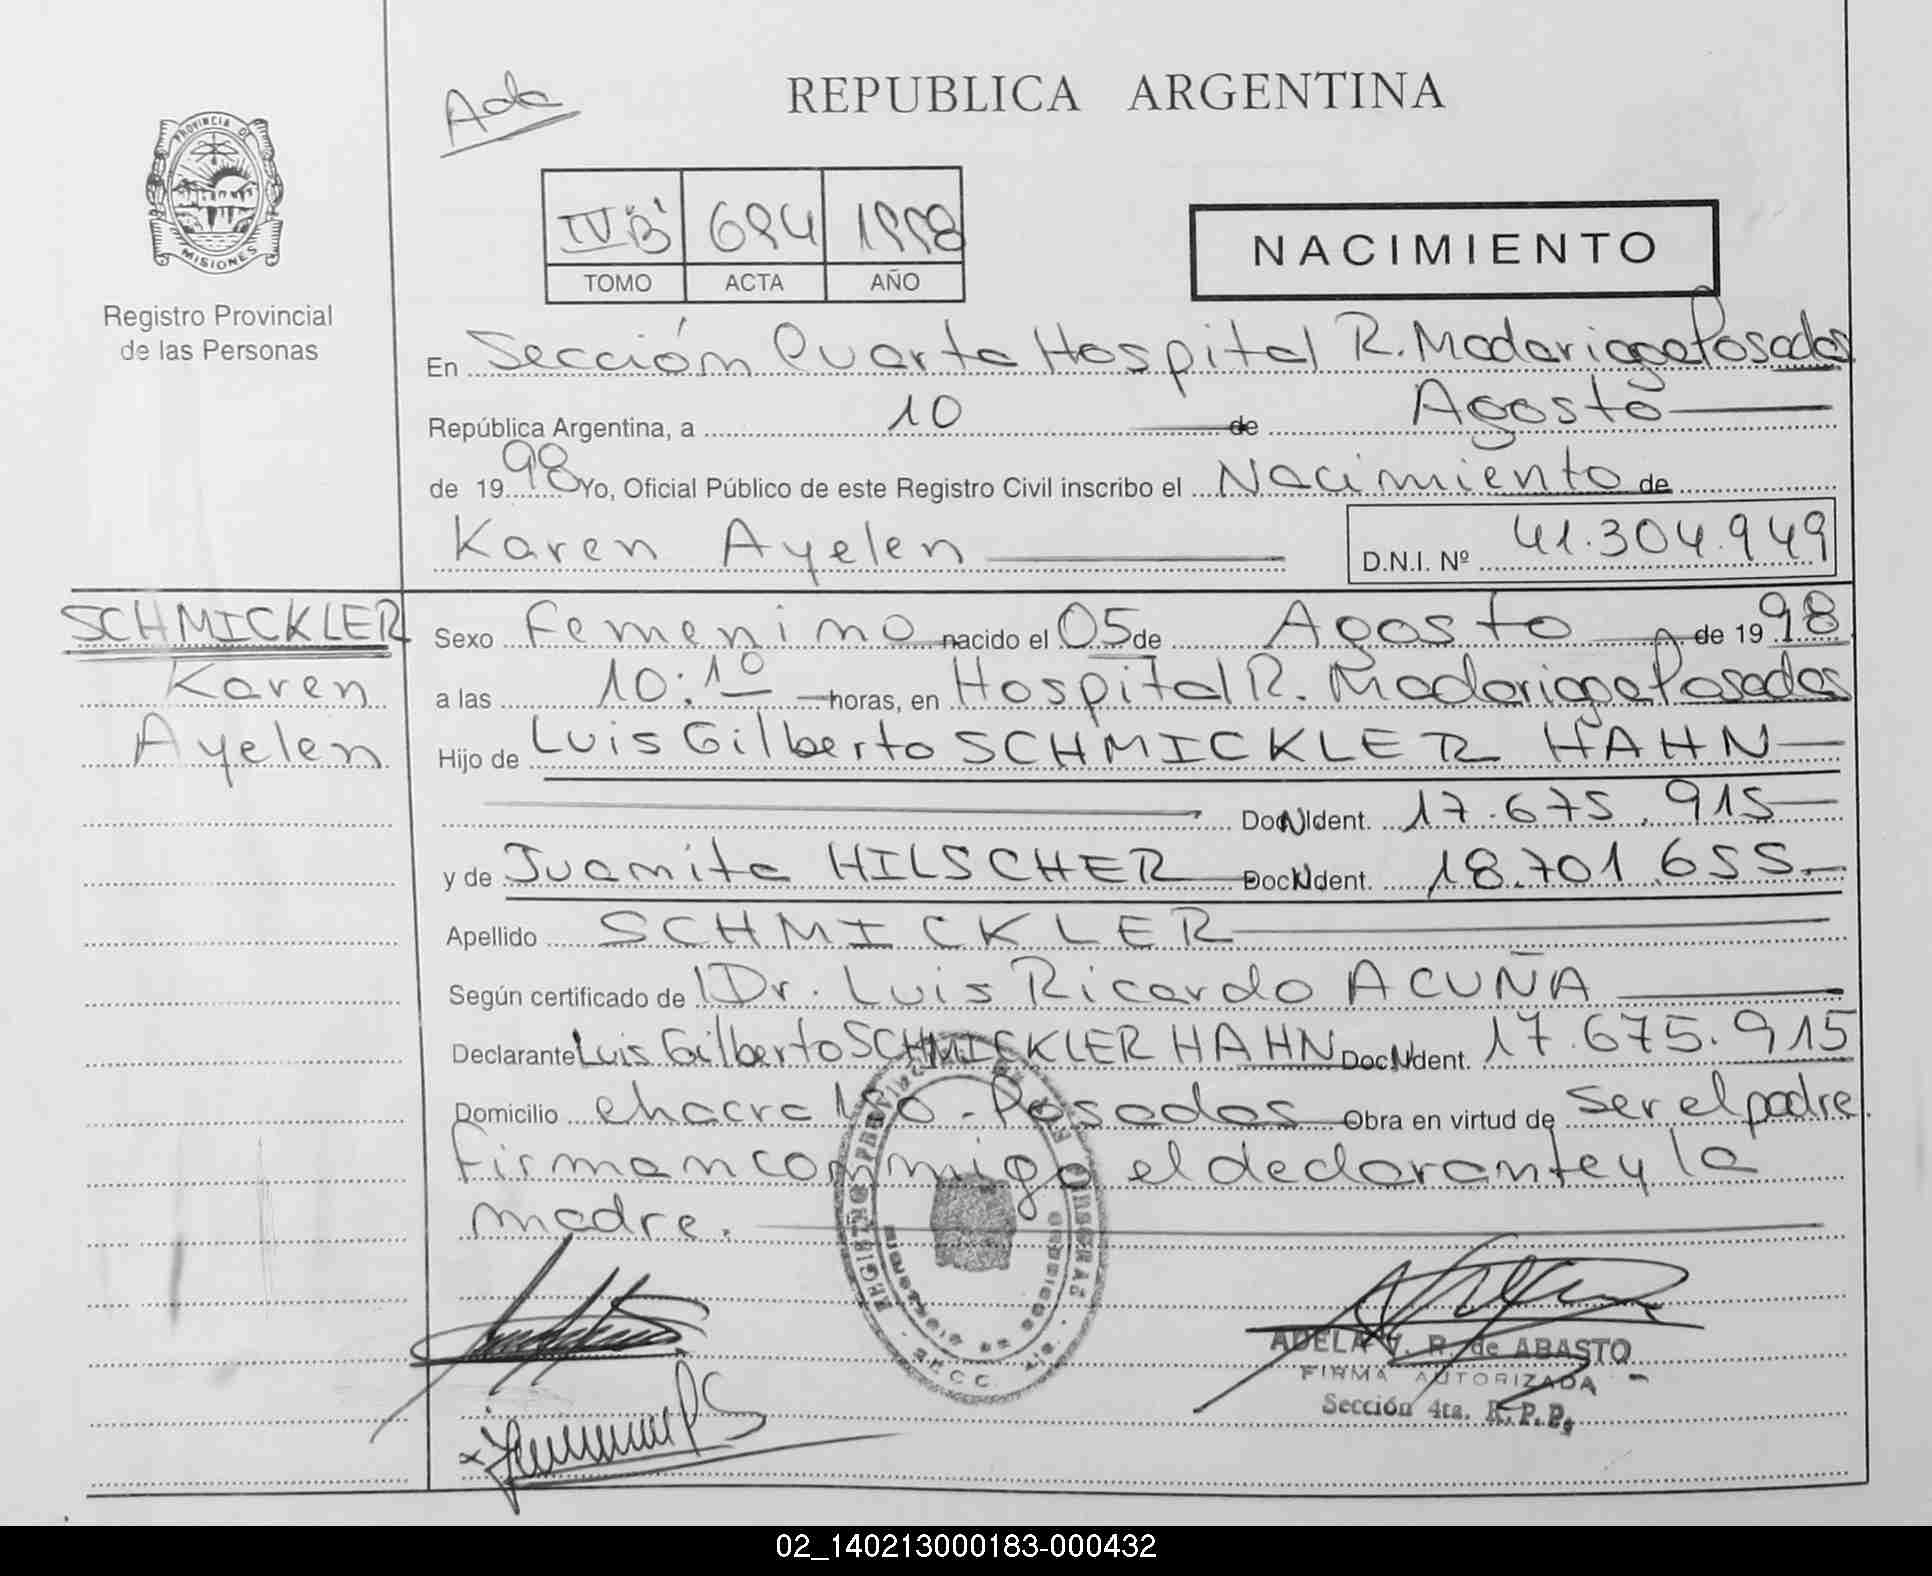 Ada
REPUBLICA ARGENTINA
PROVINCIA DE
MISIONES
Registro Provincial
de las Personas
IV "B" 694 1998
TOMO ACTA AÑO
NACIMIENTO
En Sección Cuarta Hospital R. Madariaga Posadas
República Argentina, a 10 de Agosto
de 1998 Yo, Oficial Público de este Registro Civil inscribo el Nacimiento de
Karen Ayelen D.N.I. Nº 41.304.949
SCHMICKLER
Karen
Ayelen
Sexo Femenino nacido el 05 de Agosto de 1998
a las 10:10 horas, en Hospital R. Madariaga Posadas
Hijo de Luis Gilberto SCHMICKLER HAHN
Doc N Ident. 17.675.915
y de Juanita HILSCHER Doc N Ident. 18.701.655
Apellido SCHMICKLER
Según certificado de Dr. Luis Ricardo ACUÑA
Declarante Luis Gilberto SCHMICKLER HAHN Doc N Ident. 17.675.915
Domicilio chacra 190 - Posadas Obra en virtud de ser el padre.
Firman conmigo el declarante y la
madre.
ADELA V. R. de ABASTO
FIRMA AUTORIZADA
Sección 4ta. R.P.P.
02_140213000183-000432